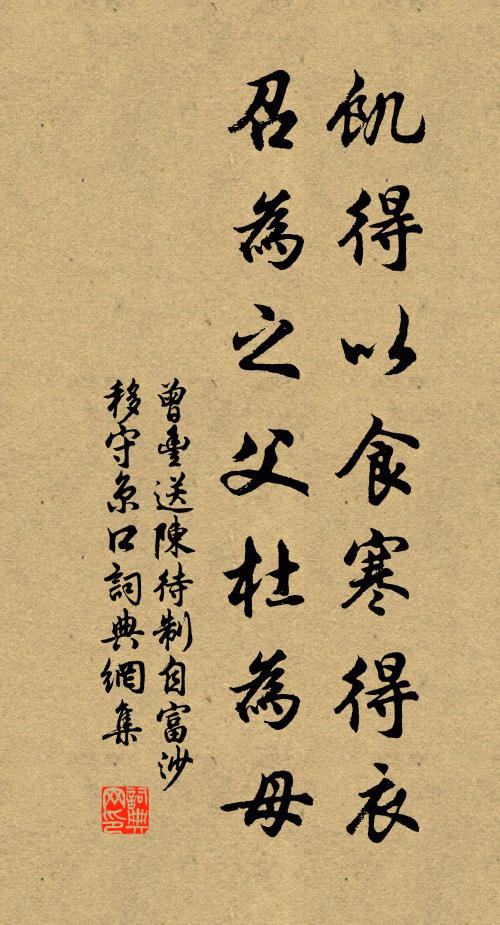 飢得以食寒得衣
召為之父杜為母
曾豊送陳待制自富沙
移守京口詞典網集
詞典
网印